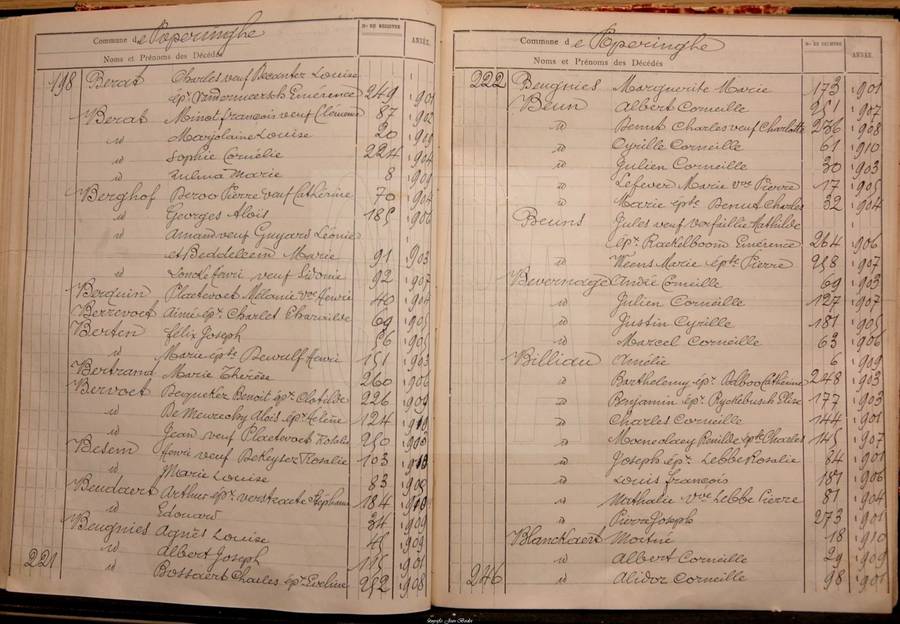 Commune de Poperinghe
Nos DE REGISTRE
ANNÉE.
Noms et Prénoms des Décédés
198 Berat Charles veuf Decanter Louise
épx Vandermeersch Emérence 249 1901
Berat Minol françois veuf Clémence 87 1902
id Marjolaine Louise 20 1909
id Sophie Cornélie 224 1904
id Zulma Marie 8 1901
Berghof Beroo Pierre veuf Cathérine 70 1904
id Georges Aloïs 185 1906
id Amand veuf Guyard Léonie
et Beddeleem Marie 91 1903
id Henri veuf Sidonie 92 1907
Berquin Plaetevoet Mélanie vve Henri 40 1904
Berrevoet Aimé épx Charlet 69 1905
Berten félix Joseph 56 1905
id Marie épte Dewulf Henri 151 1903
Bertrand Marie Thérèse 260 1906
Bervoet Becqueter Benoit épx Clotilde 226 1909
id Aloïs épx 124
id Jean veuf Plaetevoet 250
Besem Henri veuf DeKeyser Rosalie 103
id Marie Louise 83 1908
Beudaert Arthur épx Verstraete Stéphanie 184
id Edouard 34 1909
Beugnies Agnès Louise 45 1909
id Albert Joseph 115 1901
221 id Bossaert Charles épx Eveline 252 1908
Commune de Poperinghe
Nos DE REGISTRE
ANNÉE.
Noms et Prénoms des Décédés
222 Beugnies Marguerite Marie 173 1901
Beun Albert Corneille 251 1907
id Benut Charles veuf Charlotte 236 1908
id Cyrille Corneille 61 1910
id Julien Corneille 30 1903
id Lefever Marie vve Pierre 17 1905
id Marie épte Benut Charles 32 1904
Beuns Jules veuf Verfaillie Mathilde
épx Raekelboom Emérence 264 1906
id Weens Marie épte Pierre 258 1907
Bevernaege André Corneille 69 1903
id Julien Corneille 127 1907
id Justin Cyrille 181 1905
id Marcel Corneille 63 1906
Billiau Amélie 6 1909
id Barthelemy épx Cathérine 248 1903
id Benjamin épx Ryckebusch Elise 177 1903
id Charles Corneille 144 1901
id Renilde épte Charles 145 1907
id Joseph épx Lebbe Rosalie 84 1901
id Louis françois 181 1906
id Mathilde vve Lebbe Pierre 81 1904
id Pierre Joseph 273 1901
Blanckaert 18 1910
id Albert Corneille 29 1909
246 id Alidor Corneille 98 1901